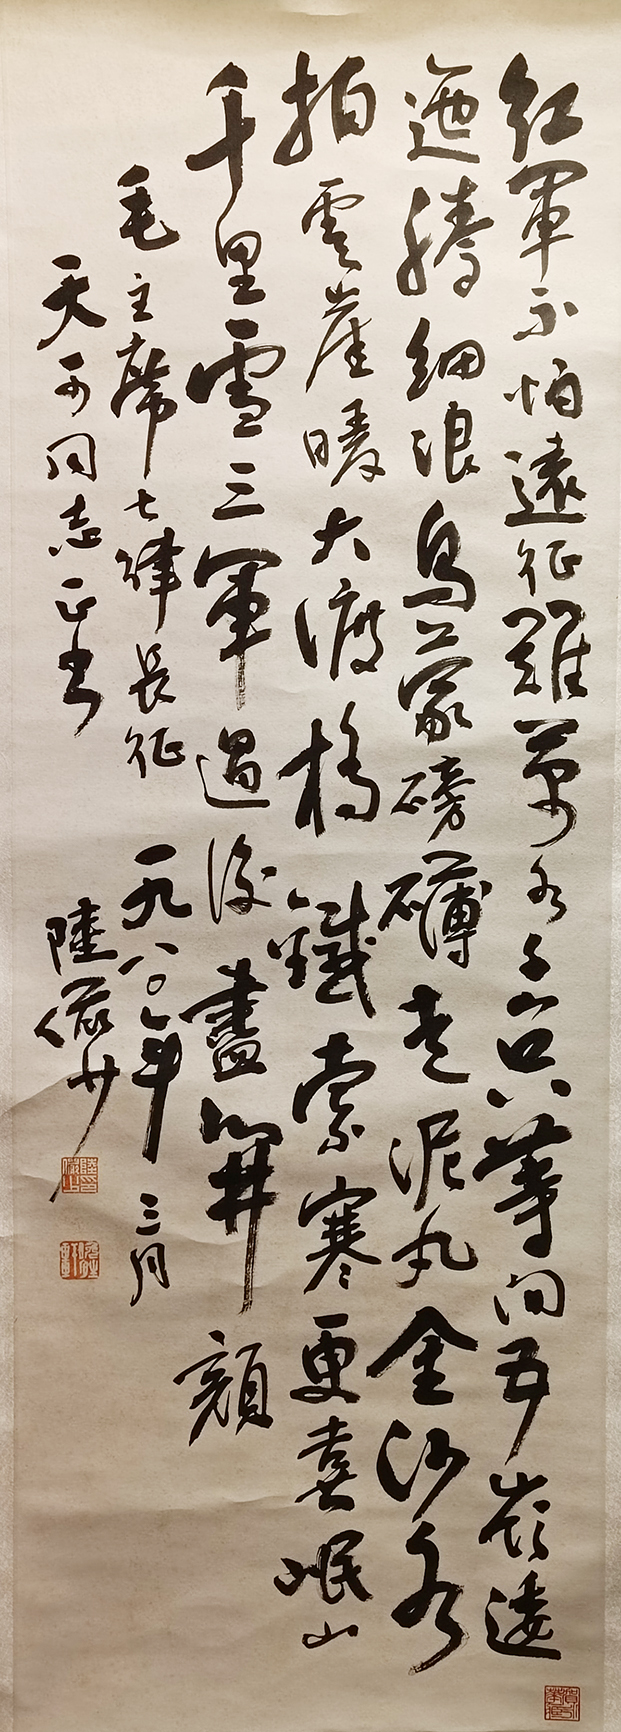 紅軍不怕遠征難萬水千山只等闲五嶺逶
迤騰細浪烏蒙磅礴走泥丸金沙水
拍雲崖暖大渡橋鐵索寒更喜岷山
千里雪三軍過後盡開顏
毛主席七律長征 一九八〇年三月
天 同志正書 陸儼少